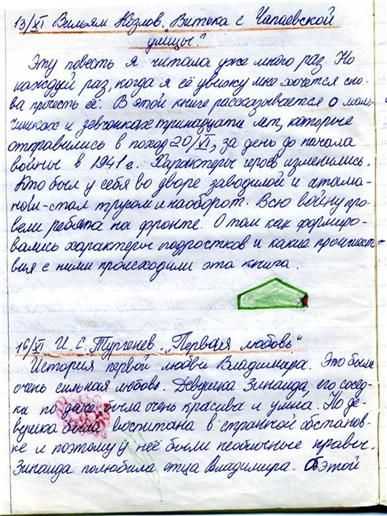 13/VI Вильям Козлов. „Витька с Чапаевской
улицы."
Эту повесть я читала уже много раз. Но
каждый раз, когда я её увижу мне хочется сно-
ва прочесть её. В этой книге рассказывается о маль-
чишках и девчонках тринадцати лет, которые
отправились в поход 20/VI, за день до начала
войны в 1941 г. Характеры героев изменились.
Кто был у себя во дворе заводилой и атама-
ном - стал трусом и наоборот. Всю войну про-
вели ребята на фронте. О том как формиро-
вались характеры подростков и какие происшест-
вия с ними происходили эта книга.
16/VI И. С. Тургенев. „Первая любовь"
История первой любви Владимира. Это была
очень сильная любовь. Девушка Зинаида, его сосед-
ка по даче, была очень красива и умна. Но де-
вушка была воспитана в странной обстанов-
ке и поэтому у неё были необычные нравы.
Зинаида полюбила отца Владимира. Об этой